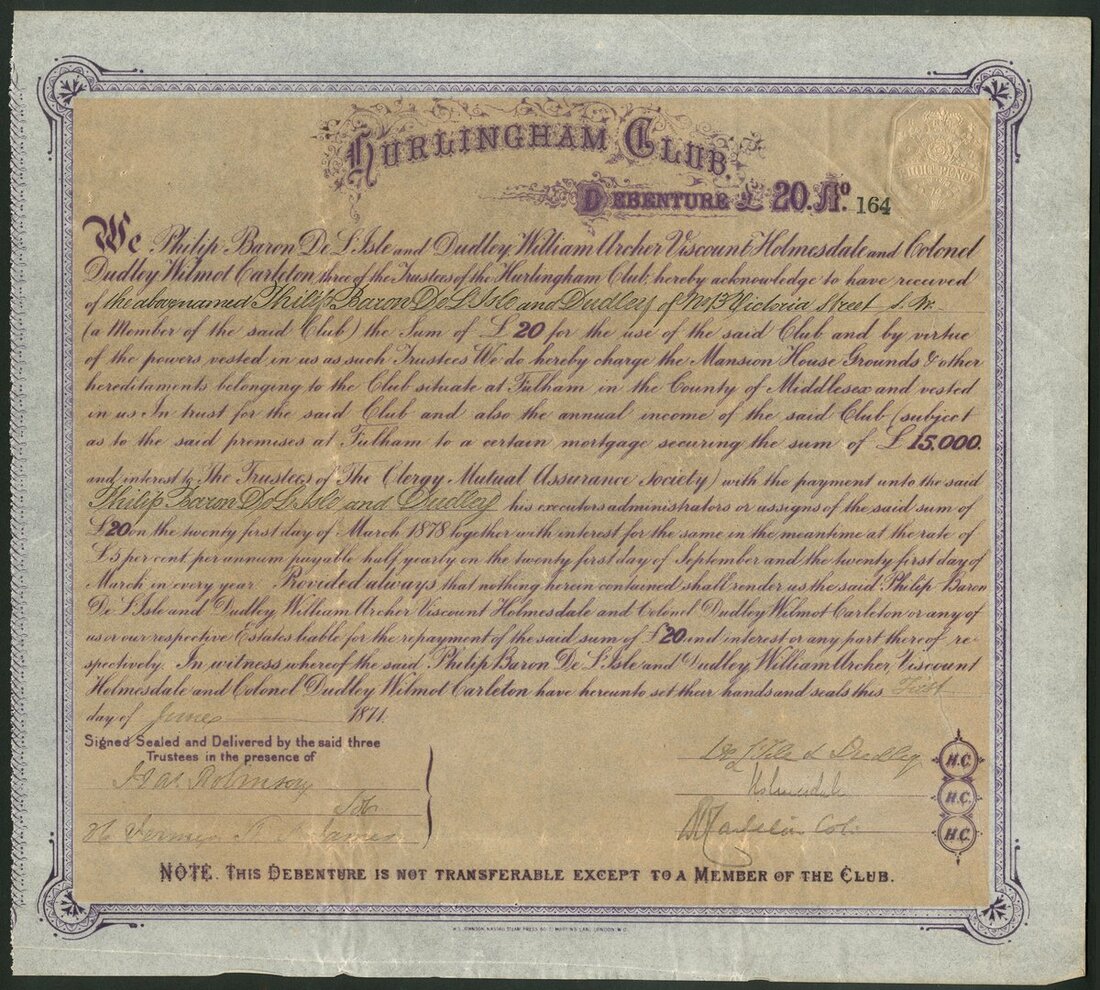 HURLINGHAM CLUB.
DEBENTURE £20. No. 164
We Philip Baron De L'Isle and Dudley, William Archer Viscount Holmesdale and Colonel
Dudley Wilmot Carleton three of the Trustees of the Hurlingham Club, hereby acknowledge to have received
of the abovenamed Philip Baron De L'Isle and Dudley of No 13 Victoria Street S.W.
(a Member of the said Club) the Sum of £20 for the use of the said Club and by virtue
of the powers vested in us as such Trustees We do hereby charge the Mansion House Grounds & other
hereditaments belonging to the Club situate at Fulham in the County of Middlesex and vested
in us In trust for the said Club and also the annual income of the said Club (subject
as to the said premises at Fulham to a certain mortgage securing the sum of £15.000.
and interest to The Trustees of The Clergy Mutual Assurance Society) with the payment unto the said
Philip Baron De L'Isle and Dudley his executors administrators or assigns of the said sum of
£20 on the twenty first day of March 1878 together with interest for the same in the meantime at the rate of
£5 per cent per annum payable half yearly on the twenty first day of September and the twenty first day of
March in every year Provided always that nothing herein contained shall render us the said Philip Baron
De L'Isle and Dudley, William Archer Viscount Holmesdale and Colonel Dudley Wilmot Carleton or any of
us or our respective Estates liable for the repayment of the said sum of £20 and interest or any part thereof re-
spectively. In witness whereof the said Philip Baron De L'Isle and Dudley, William Archer, Viscount
Holmesdale and Colonel Dudley Wilmot Carleton have hereunto set their hands and seals this First
day of June 1877.
Signed Sealed and Delivered by the said three
Trustees in the presence of
Robinson
De L'Isle & Dudley
Holmesdale
Col:
James
H.C.
H.C.
H.C.
NOTE. THIS DEBENTURE IS NOT TRANSFERABLE EXCEPT TO A MEMBER OF THE CLUB.
JOHNSON, NASSAU STEAM PRESS, MARTINS LANE, LONDON, W.C.